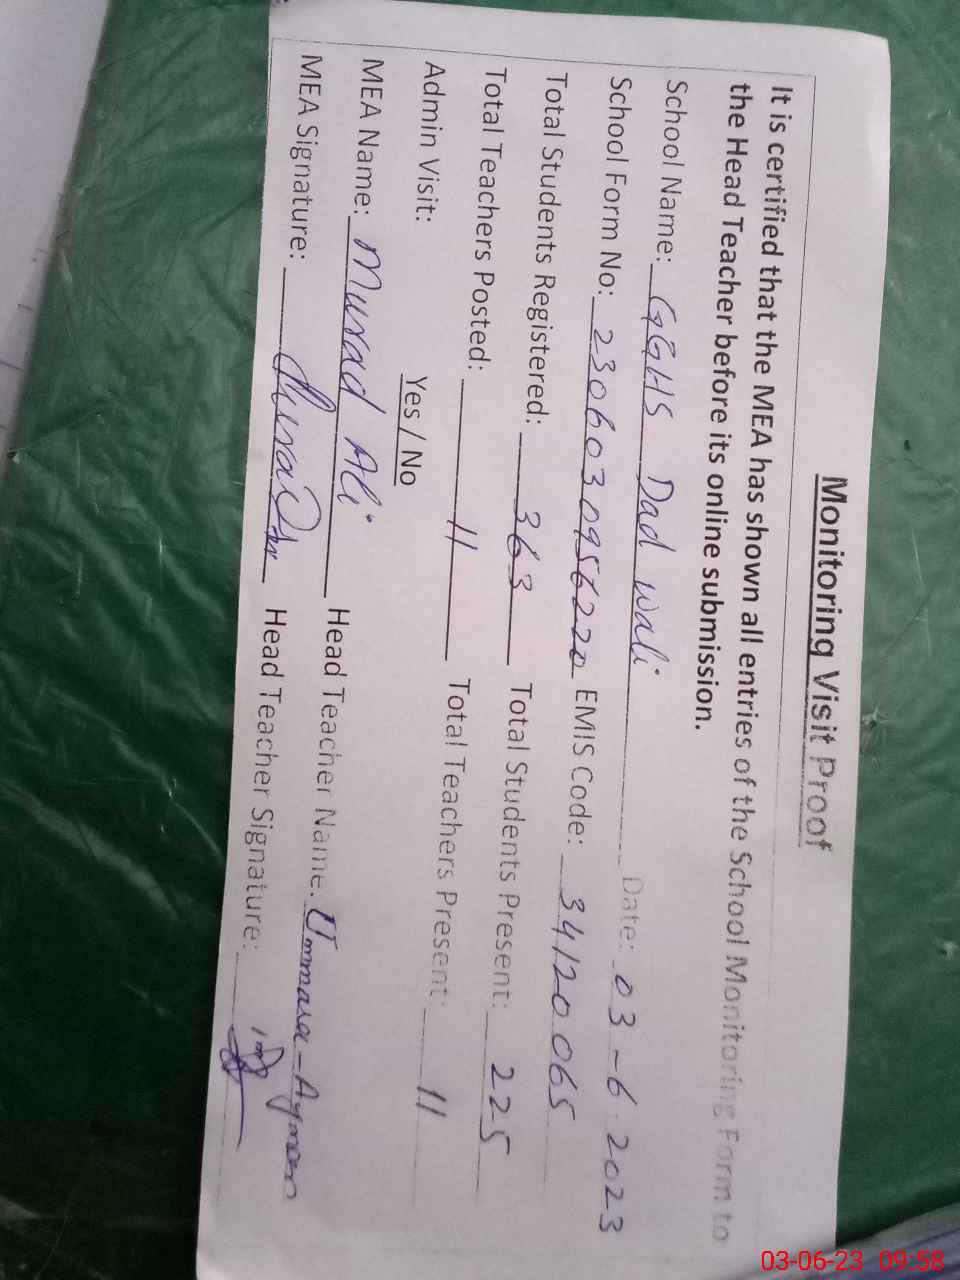 Monitoring Visit Proof
It is certified that the MEA has shown all entries of the School Monitoring Form to
the Head Teacher before its online submission.
School Name: GGHS Dad wali Date: 03-6-2023
School Form No: 2306030956220 EMIS Code: 34120065
Total Students Registered: 363 Total Students Present: 225
Total Teachers Posted: 11 Total Teachers Present: 11
Admin Visit: Yes / No
MEA Name: Murad Ali Head Teacher Name: Ummara-Aymen
MEA Signature: Head Teacher Signature:
03-06-23 09:58